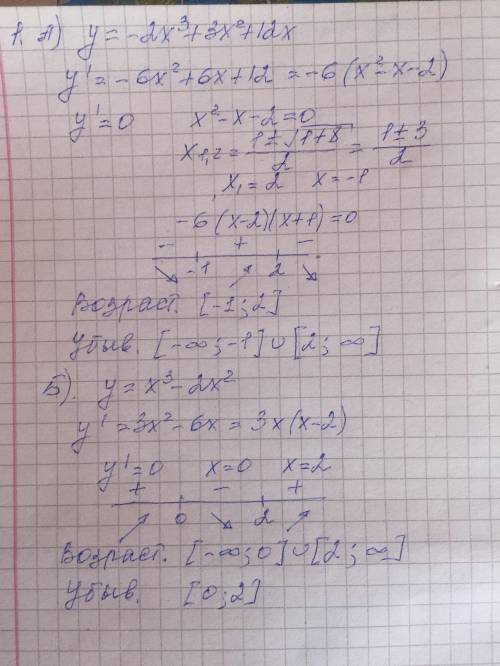 1. А) y = -2x³+3x²+12x
y' = -6x²+6x+12 = -6(x²-x-2)
y'=0 x²-x-2=0
x₁,₂ = (1±√(1+8))/2 = (1±3)/2
x₁=2 x=-1
-6(x-2)(x+1)=0
- + -
↘ -1 ↗ 2 ↘
Возраст. [-1; 2]
Убыв. [-∞; -1] ∪ [2; ∞]
Б). y = x³-2x²
y' = 3x²-6x = 3x(x-2)
y'=0 x=0 x=2
+ - +
↗ 0 ↘ 2 ↗
Возраст. [-∞; 0] ∪ [2; ∞]
Убыв. [0; 2]